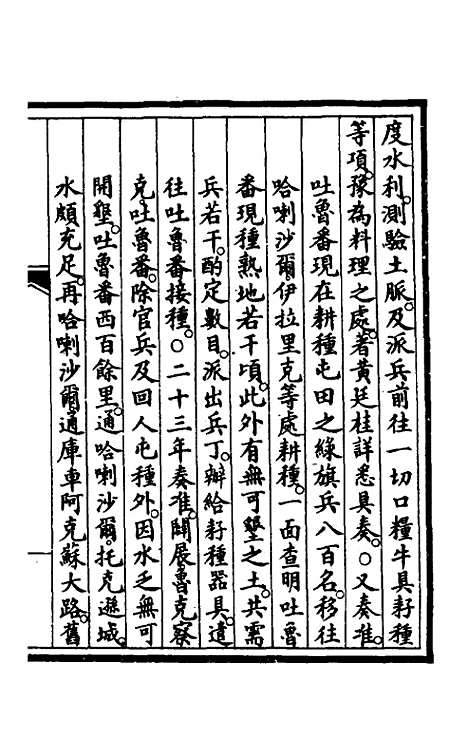 度水利。測驗土脈。及派兵前往一切口糧牛具耔種
等項。豫為料理之處。著黃廷桂詳悉具奏。○又奏准。
吐魯番現在耕種屯田之綠旗兵八百名。移往
哈喇沙爾伊拉里克等處耕種。一面查明吐魯
番現種熟地若干頃。此外有無可墾之土。共需
兵若干。酌定數目。派出兵丁。辦給耔種器具。遣
往吐魯番接種。○二十三年奏准。闢展魯克察
克。吐魯番。除官兵及回人屯種外。因水乏無可
開墾。吐魯番西百餘里。通哈喇沙爾。托克遜城。
水頗充足。再哈喇沙爾。通庫車阿克蘇大路。舊